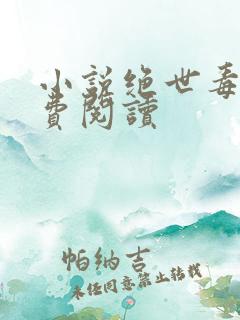 小说绝世毒
費閱讀
帕纳吉
未经同意禁止转载